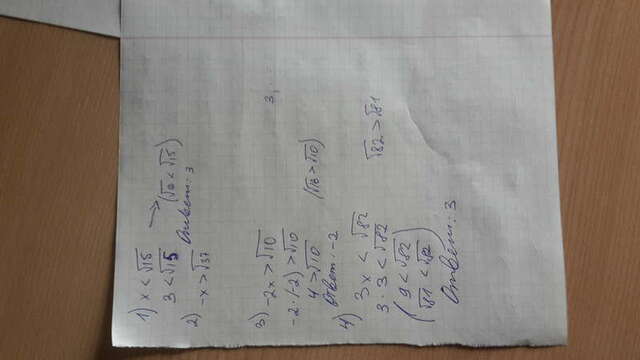 1) x < √15
3 < √15 → (√9 < √15)
Ответ: 3
2) -x > √37
3) -2x > √10
3,
-2·(-2) > √10
4 > √10 (√16 > √10)
Ответ: -2
4) 3x < √82
3·3 < √82 √82 > √81
(9 < √82
√81 < √82)
Ответ: 3